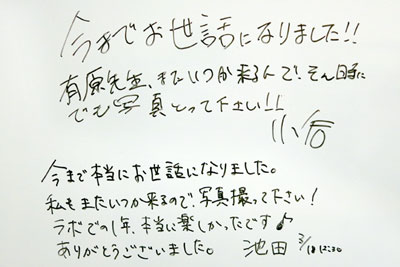 今までお世話になりました!!
有原先生、またいつか来るんで、そん時に
でも写真とって下さい!!
小谷
今まで本当にお世話になりました。
私もまたいつか来るので、写真撮って下さい!
ラボでの1年、本当に楽しかったです♪
ありがとうございました。 池田 3/18